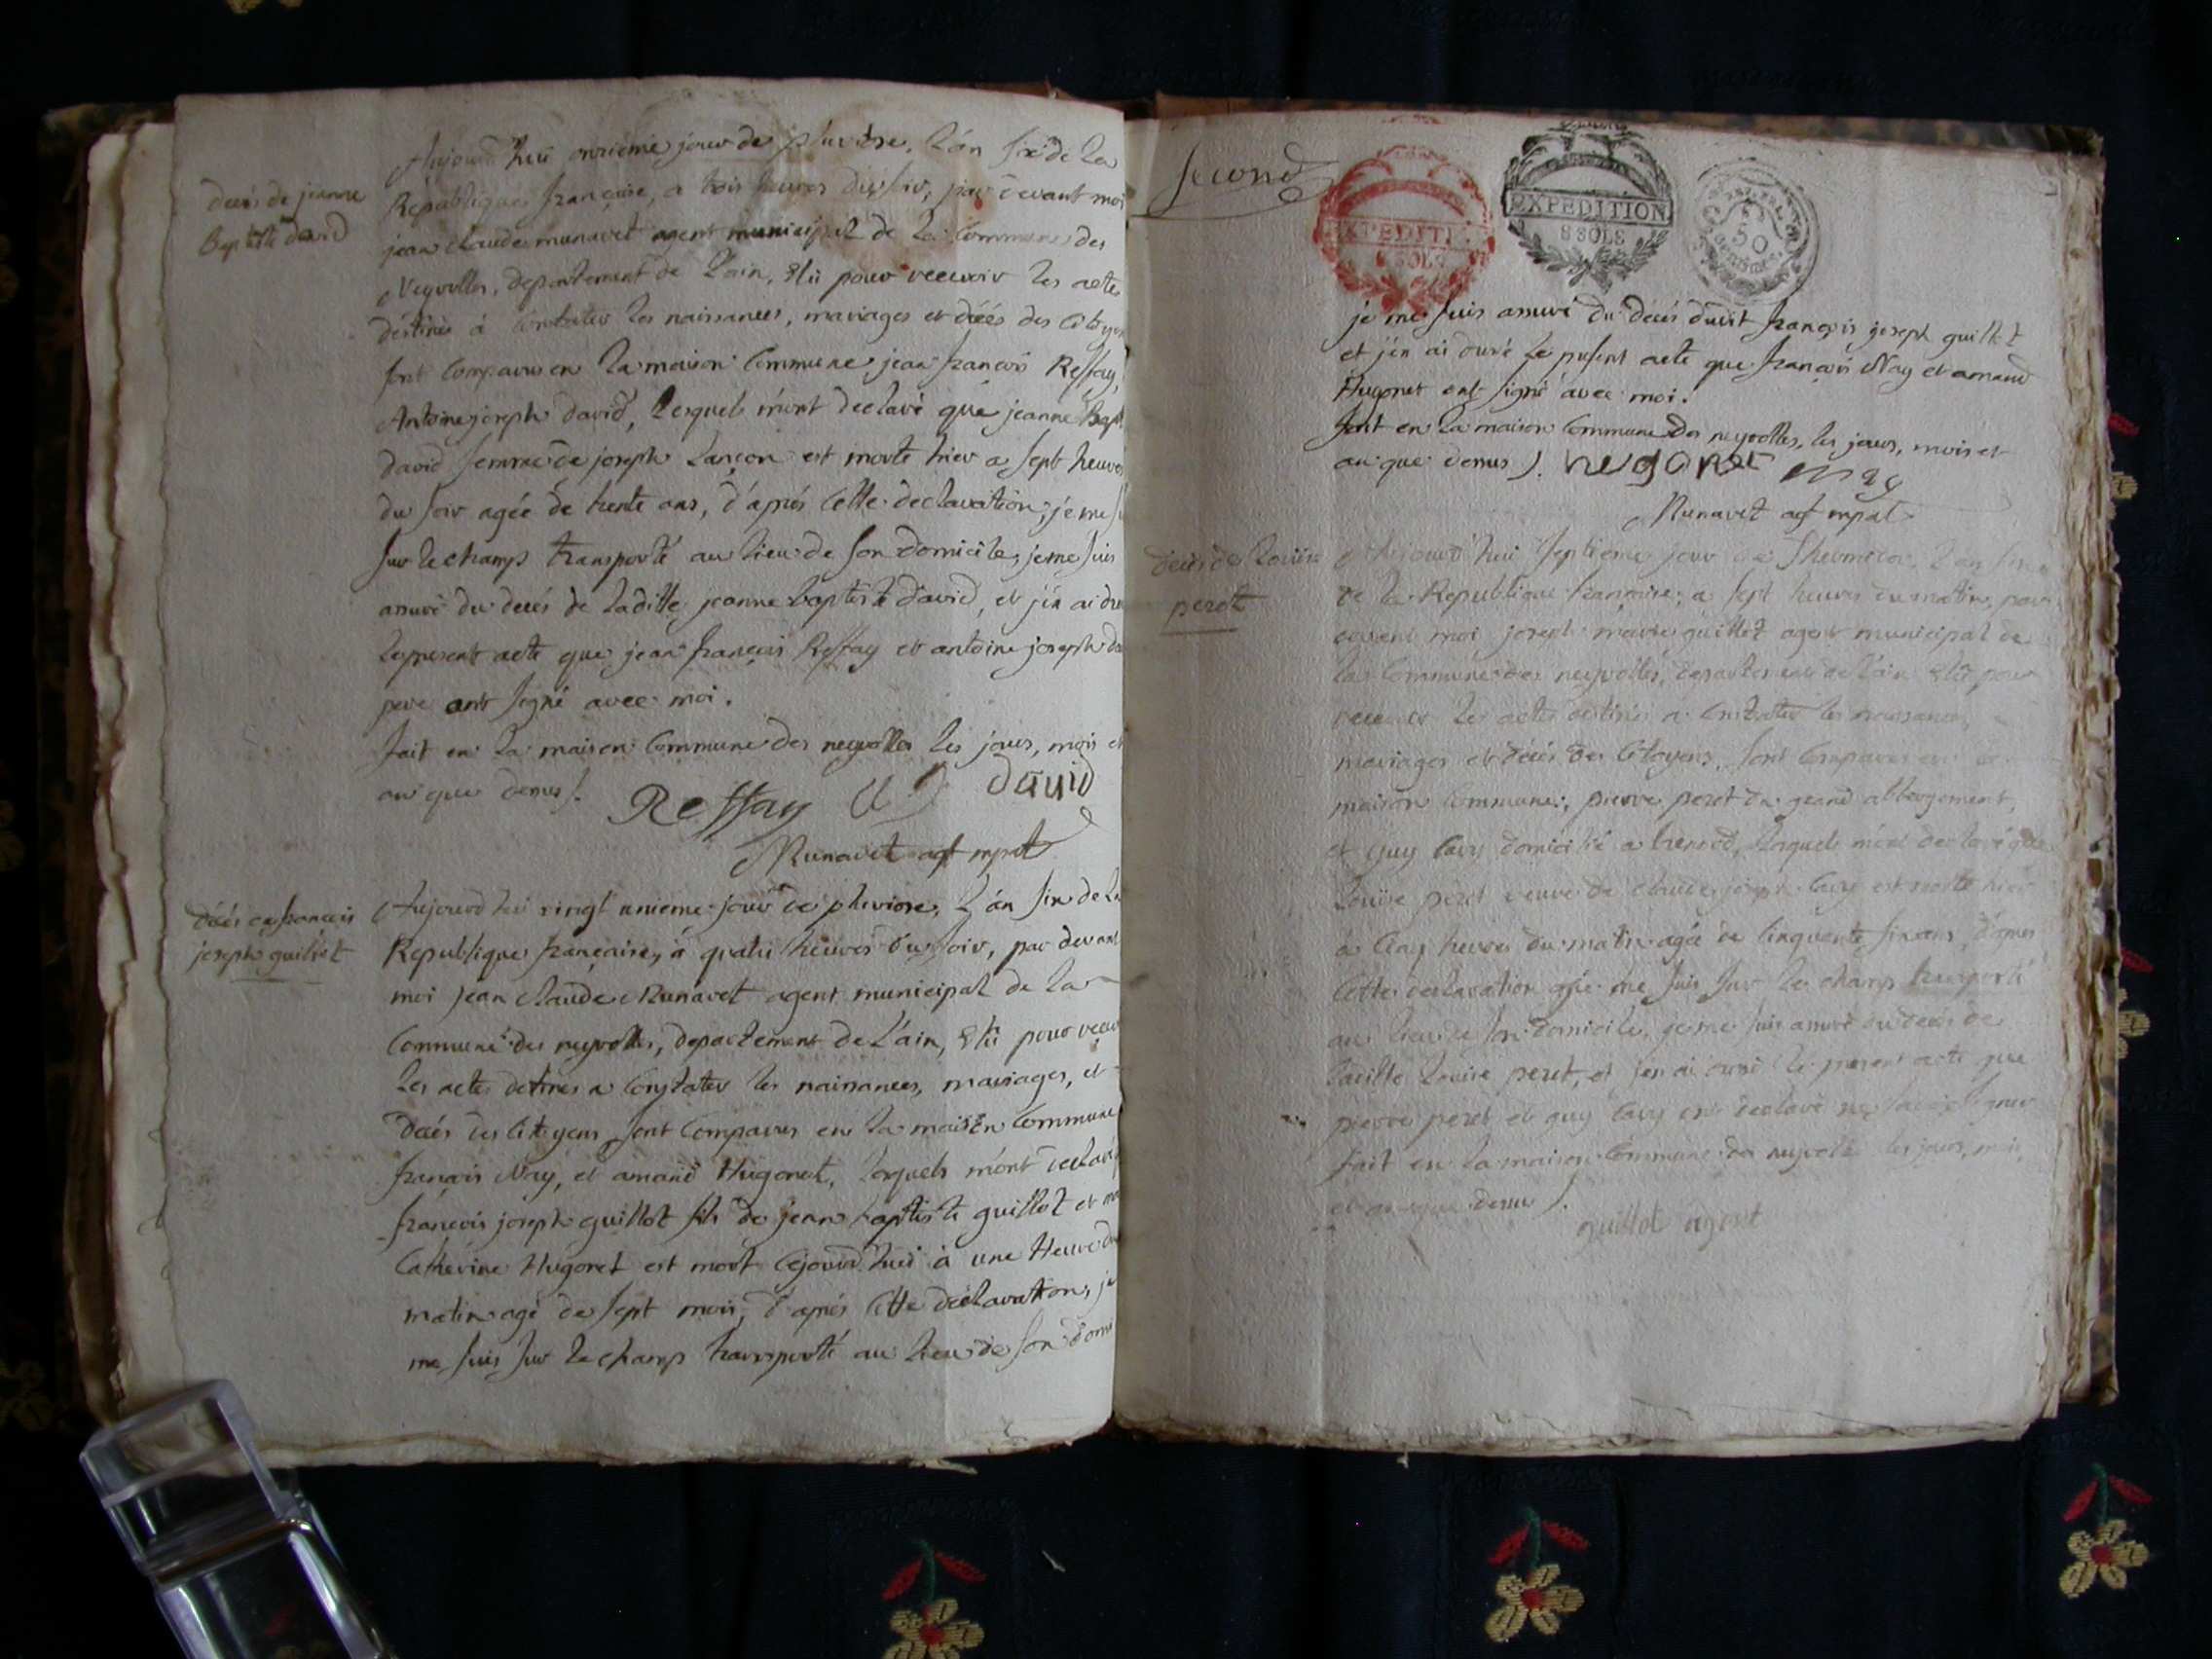 Aujourd'hui onzieme jour de pluviose, L'an six de La
decès de jeanne
Baptiste david
Republique française, a trois heures du soir, par devant moi
jean claude munavet agent municipal de La Commune des
Neyrolles, departement de L'ain, élü pour recevoir les actes
déstinés à constater les naissances, mariages et décés des Citoyens
sont comparus en La maison Commune jean françois Reffay,
Antoine joseph david, Lesquels m'ont declaré que jeanne Bapt
david femme de joseph Lançon est morte hier a sept heures
du soir agée de trente ans, d'aprés Cette declaration, je me s
sur le champs transporté au lieu de son domicile, je me suis
assuré du decés de Laditte jeanne baptiste david, et j'en ai dre
le present acte que jean françois Reffay et antoine joseph da
pere ont signé avec moi.
fait en La maison Commune des neyrolles les jours, mois et
an que dessus /.
Reffay david
Munavet agt mpal
décés de francois
joseph guillot
Aujourd'hui vingt unieme jour de pluviose, L'an six de La
Republique française, à quatre heures du soir, par devant
moi jean claude Munavet agent municipal de La
Commune des neyrolles, departement de L'ain, élü pour recev
les actes detinés a Constater les naissances, mariages, et
Décés des citoyens sont Comparus en La maison Commune
francois Nay, et amand Hugonet, lesquels m'ont declaré q
françois joseph guillot fils de jean baptiste guillot et m
Catherine Hugonet est mort cejourd'hui à une Heure du
matin agé de sept mois, d'aprés Cette déclaration, je
me suis sur le champs transporté au lieu de son domi
second
EXPEDITION
8 SOLS
EXPEDITION
8 SOLS
50
centimes
je me suis assuré du décés dudit françois joseph guillot
et j'en ai dressé le present acte que francois Nay et amand
Hugonet ont signé avec moi.
fait en La maison Commune des neyrolles, les jours, mois et
an que dessus /. hugonet nay
Munavet agt mpal
décés de Louise
peret
Aujourd'hui septieme jour de thermidor, L'an six
de La Republique française, a sept heures du matin, par
devant moi joseph marie guillot agent municipal de
la Commune des neyrolles, departement de l'ain élü pour
recevoir les actes destinés a constater les naissances,
mariages et décés des Citoyens, sont Comparus en La
maison Commune, pierre peret du grand abbergement,
et guy Cavy domicilié a lesquels m'ont declaré que
Louise peret veuve de Claude joseph Cavy est morte hier
à Cinq heures du matin agée de Cinquante six ans, d'aprés
Cette declaration je me suis sur le champs transporté
au lieu de son domicile, je me suis assuré du decés de
laditte Louise peret, et j'en ai dressé le present acte que
pierre peret et guy Cavy ont declaré ne savoir signer
fait en La maison Commune des neyrolles les jours, mois
et an que dessus /.
guillot agent